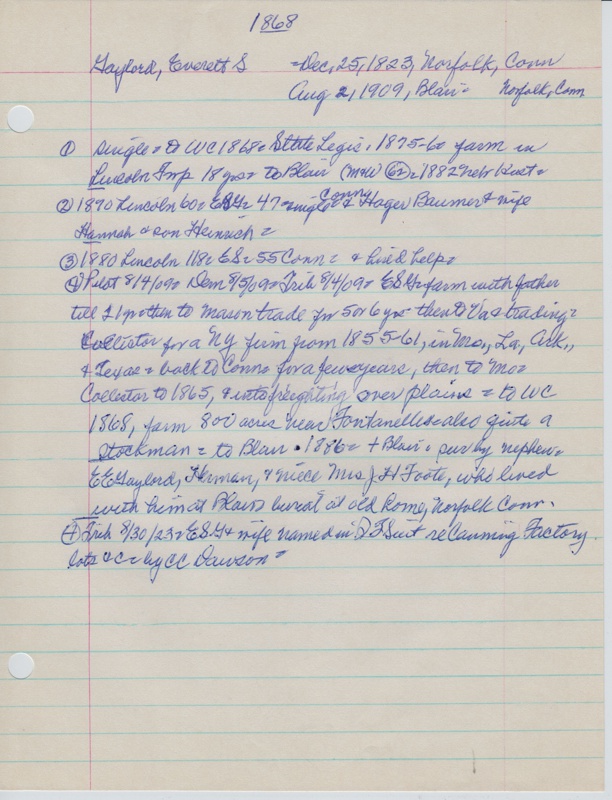 1868
Gaylord, Everett S = Dec, 25, 1823, Norfolk, Conn
Aug 2, 1909, Blair = Norfolk, Conn
① single = to WC 1868 = State Legis, 1875-6 = farm in
Lincoln Twp 18 yrs = to Blair (62) = 1882 Nebr
② 1870 Lincoln 60 = ESG = 47 = single Conn & Hager Baumer & wife
Hannah & son Heinrich =
③ 1880 Lincoln 118 = ES = 55 Conn = & hired help =
④ Pilot 8/4/09 = Dem 8/5/09 = Trib 8/4/09 = ESG = farm with father
till 21 = then to Mason trade for 5 or 6 yrs = then to Va = trading =
Collector for a NY firm from 1855-61, in Mo,, La, Ark,,
& Texas = back to Conn for a few years, then to Mo =
Collector to 1865, & into freighting over plains = to WC
1868, farm 800 acres near Fontanelle = also quite a
stockman = to Blair 1886 = + Blair = sur by nephew =
EE Gaylord, Herman, & niece Mrs J H Foote, who lived
with him at Blair = burial at old home, Norfolk Conn.
④ Trib 8/30/23 = ESG & wife named in QT Suit reclaiming Factory
lots &c = by CC Dawson =